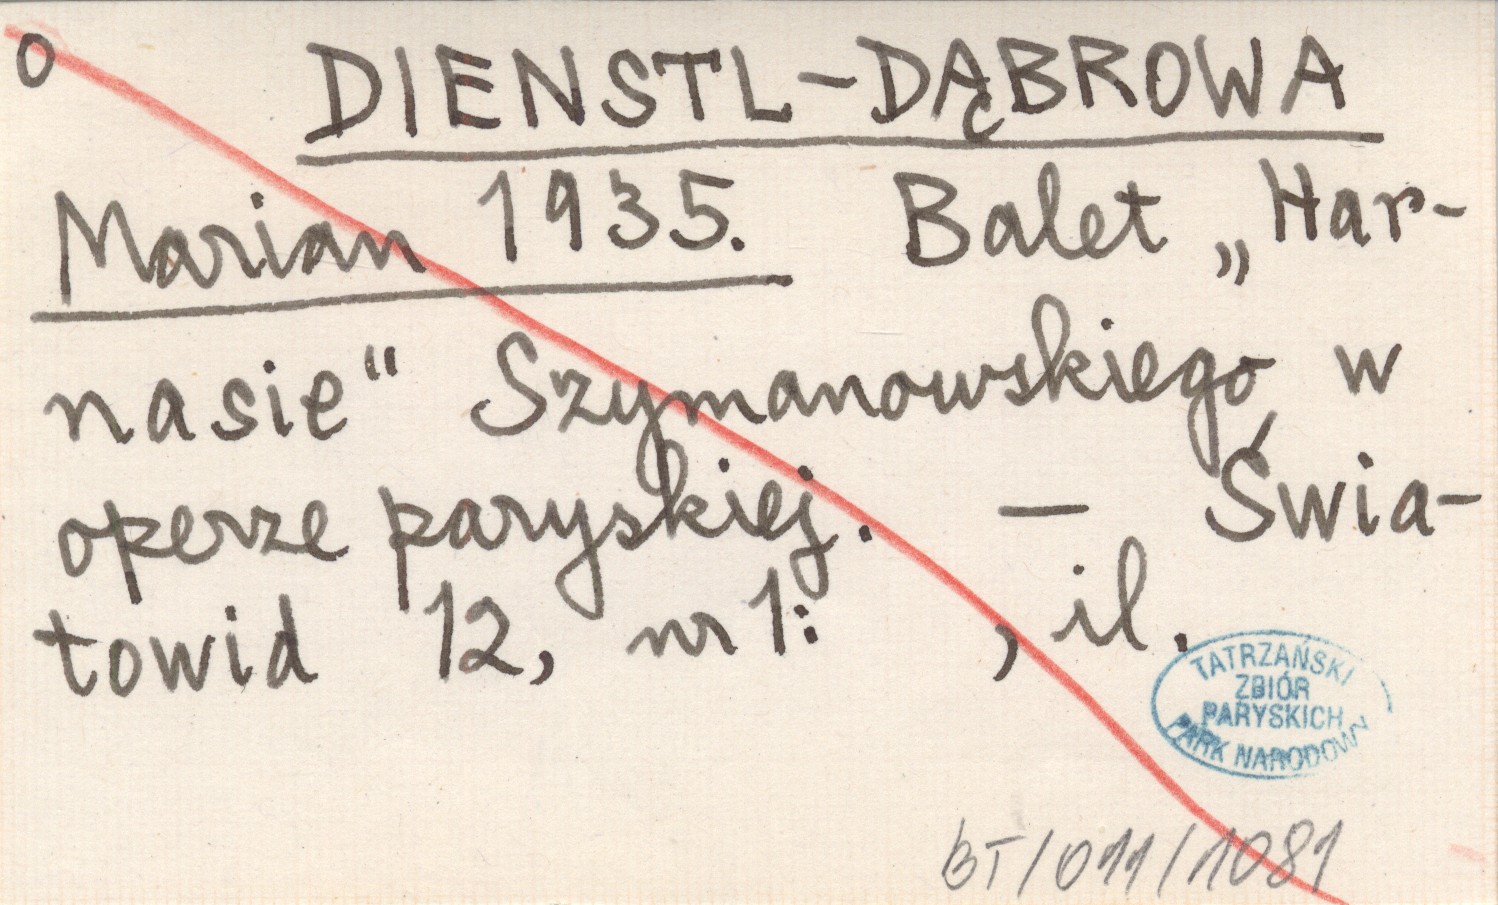 o DIENSTL-DĄBROWA
Marian 1935. Balet „Har-
nasie" Szymanowskiego w
operze paryskiej. — Świa-
towid 12, nr 1: , il.
TATRZAŃSKI
ZBIÓR
PARYSKICH
PARK NARODOWY
BT/011/1081